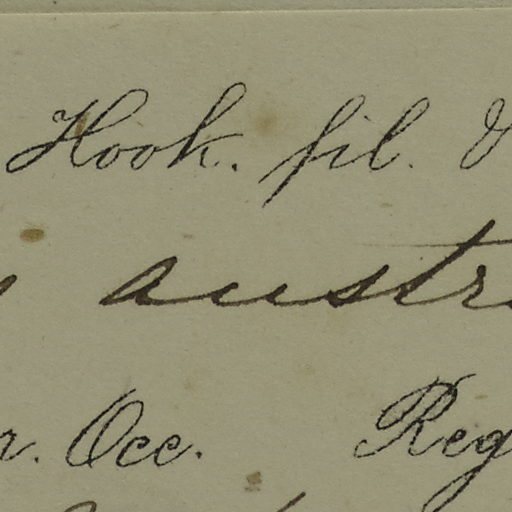 Hook. fil. &
austr
r. Occ. Reg